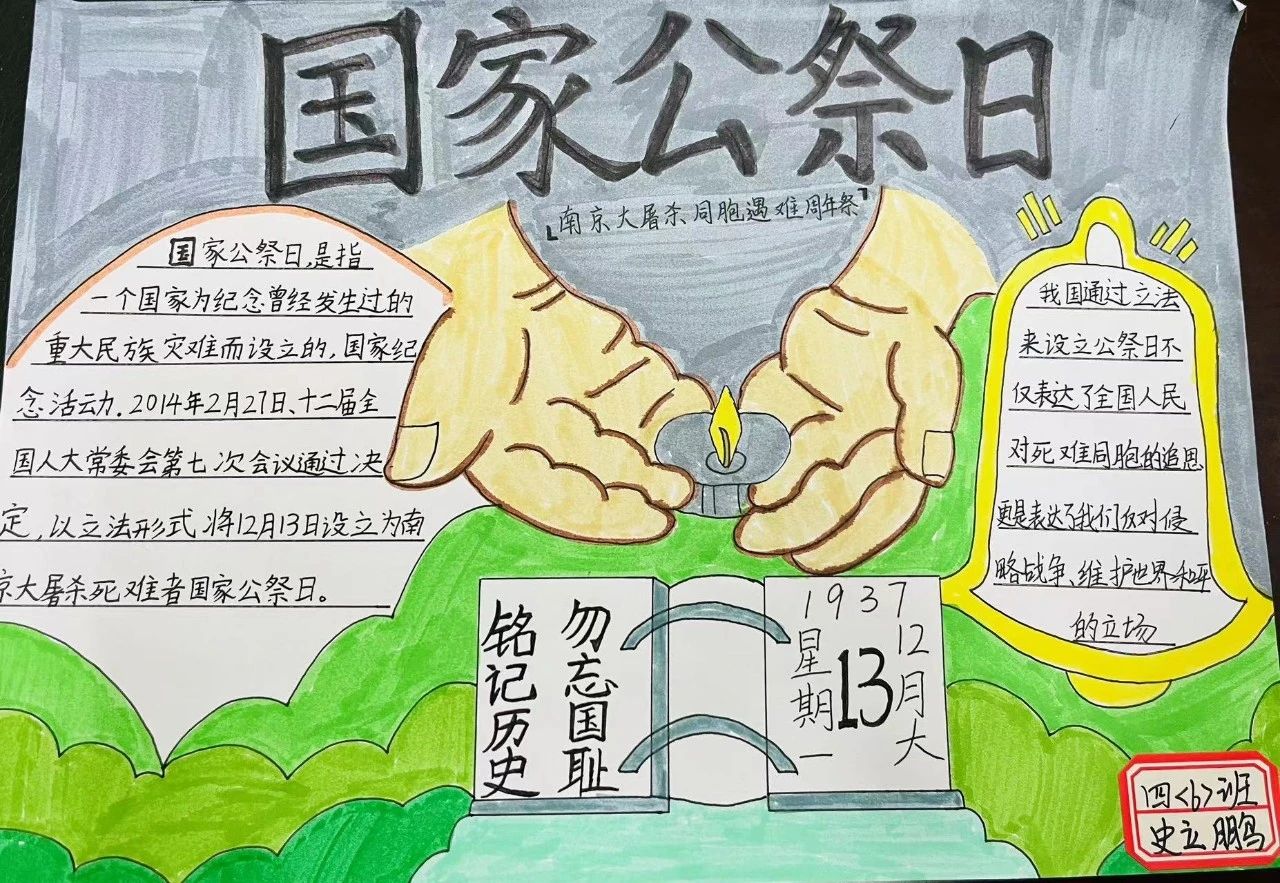 国家公祭日
「南京大屠杀同胞遇难周年祭」
国家公祭日,是指
一个国家为纪念曾经发生过的
重大民族灾难而设立的,国家纪
念活动.2014年2月27日、十二届全
国人大常委会第七次会议通过决
定,以立法形式将12月13日设立为南
京大屠杀死难者国家公祭日。
我国通过立法
来设立公祭日不
仅表达了全国人民
对死难同胞的追思
更是表达了我们反对侵
略战争、维护世界和平
的立场
勿忘国耻
铭记历史
1937
12月大
13
星期一
四<6>班
史立鹏